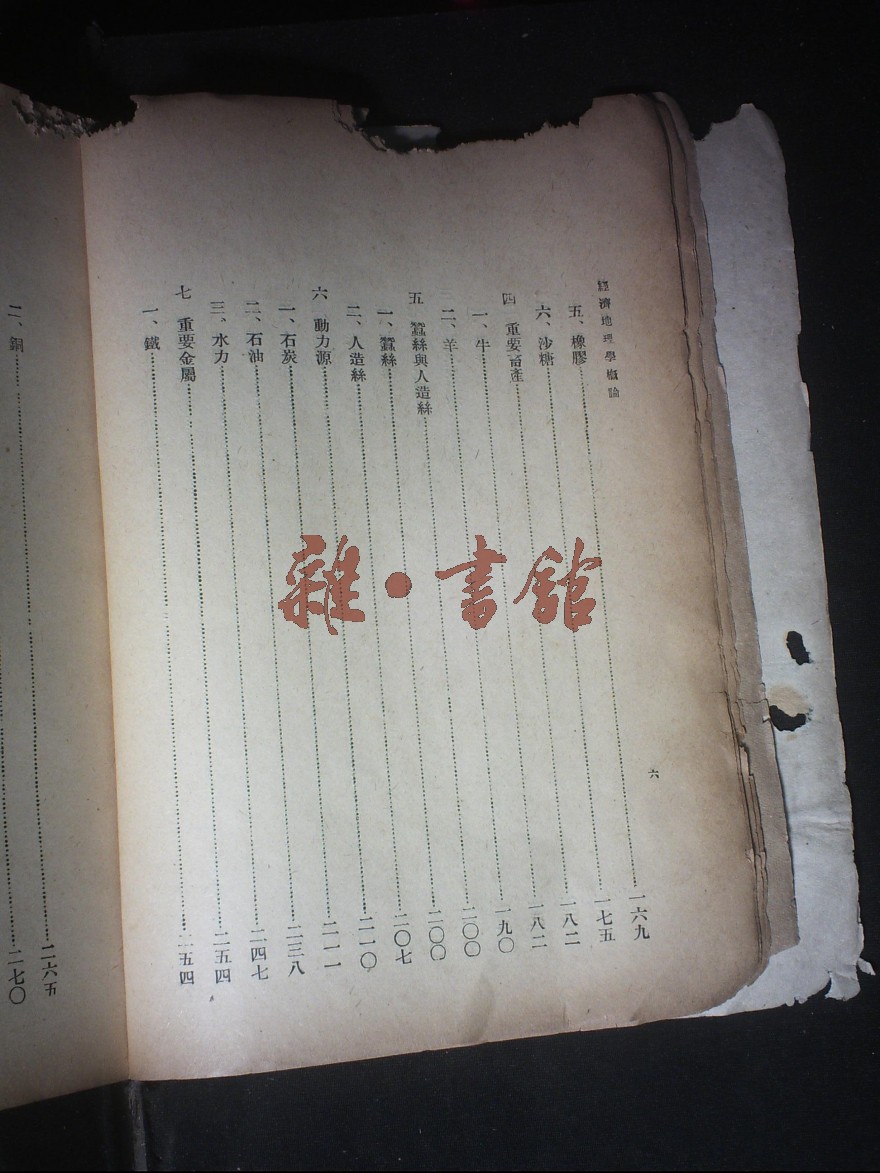 經濟地理學概論
六
五、橡膠……一六九
六、沙糖……一七五
四 重要畜產……一八二
一、牛……一八二
二、羊……一九〇
五 蠶絲與人造絲……二〇〇
一、蠶絲……二〇〇
二、人造絲……二〇七
六 動力源……二一〇
一、石炭……二一一
二、石油……二三八
三、水力……二四七
七 重要金屬……二五四
一、鐵……二五四
二、銅……二六五
二七〇
雜·書館